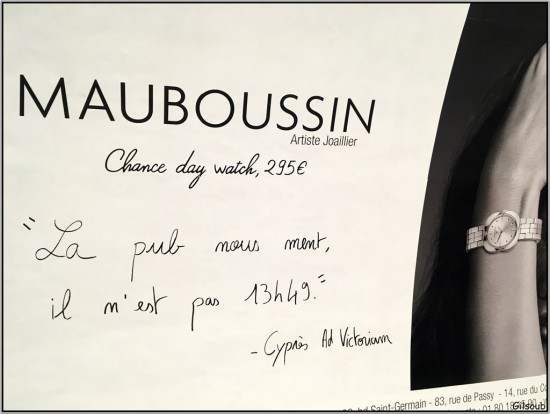 MAUBOUSSIN
Artiste Joaillier
Chance day watch, 295€
"La pub nous ment,
il n'est pas 13h49."
- Cyprès Ad Victoriam
Saint-Germain - 83, rue de Passy - 14, rue du Co
01 80 18
Gilsoub